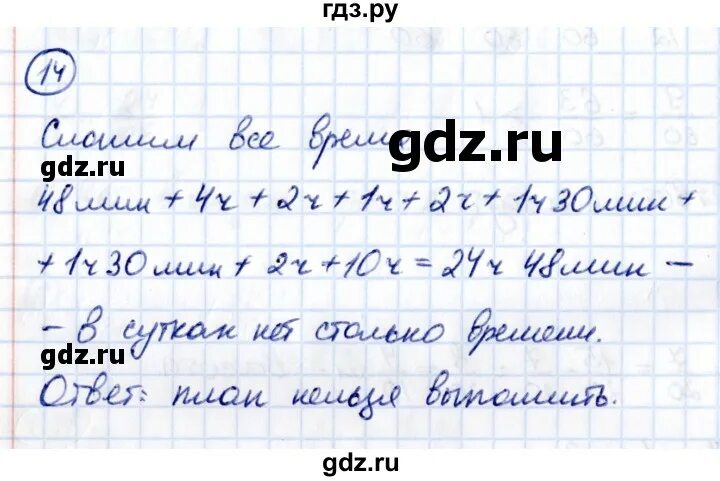 гдз.ру
14
Сложим все время
gdz.ru gdz.ru
48мин + 4ч + 2ч + 1ч + 2ч + 1ч 30мин +
gdz.ru
+ 1ч 30мин + 2ч + 10ч = 24ч 48мин -
gdz.ru
- в сутках нет столько времени.
gdz.ru
Ответ: план нельзя выполнить.
gdz.ru
gdz.ru